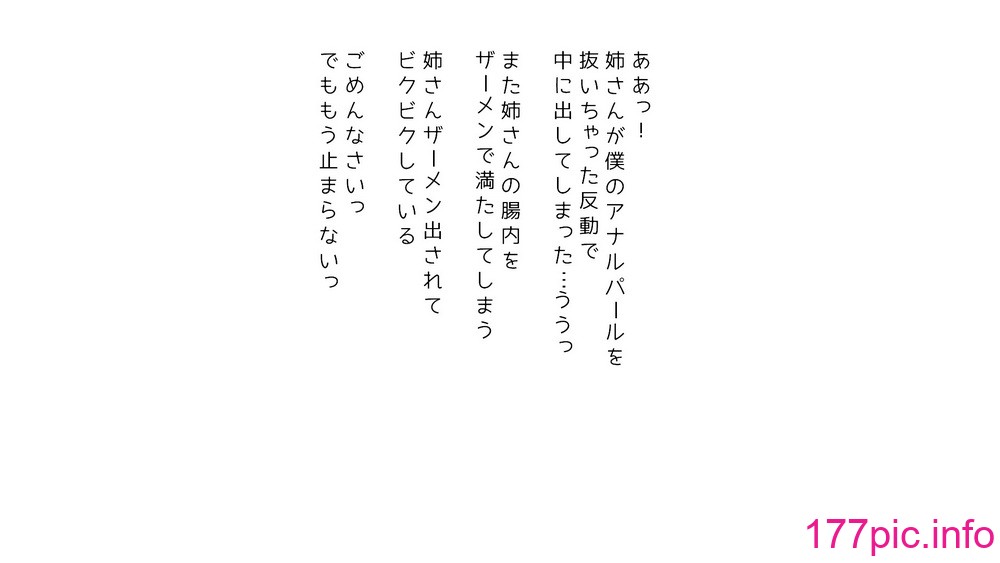 ああっ！
姉さんが僕のアナルパールを
抜いちゃった反動で
中に出してしまった…ううっ
また姉さんの腸内を
ザーメンで満たしてしまう
姉さんザーメン出されて
ビクビクしている
ごめんなさいっ
でももう止まらないっ
177pic.info